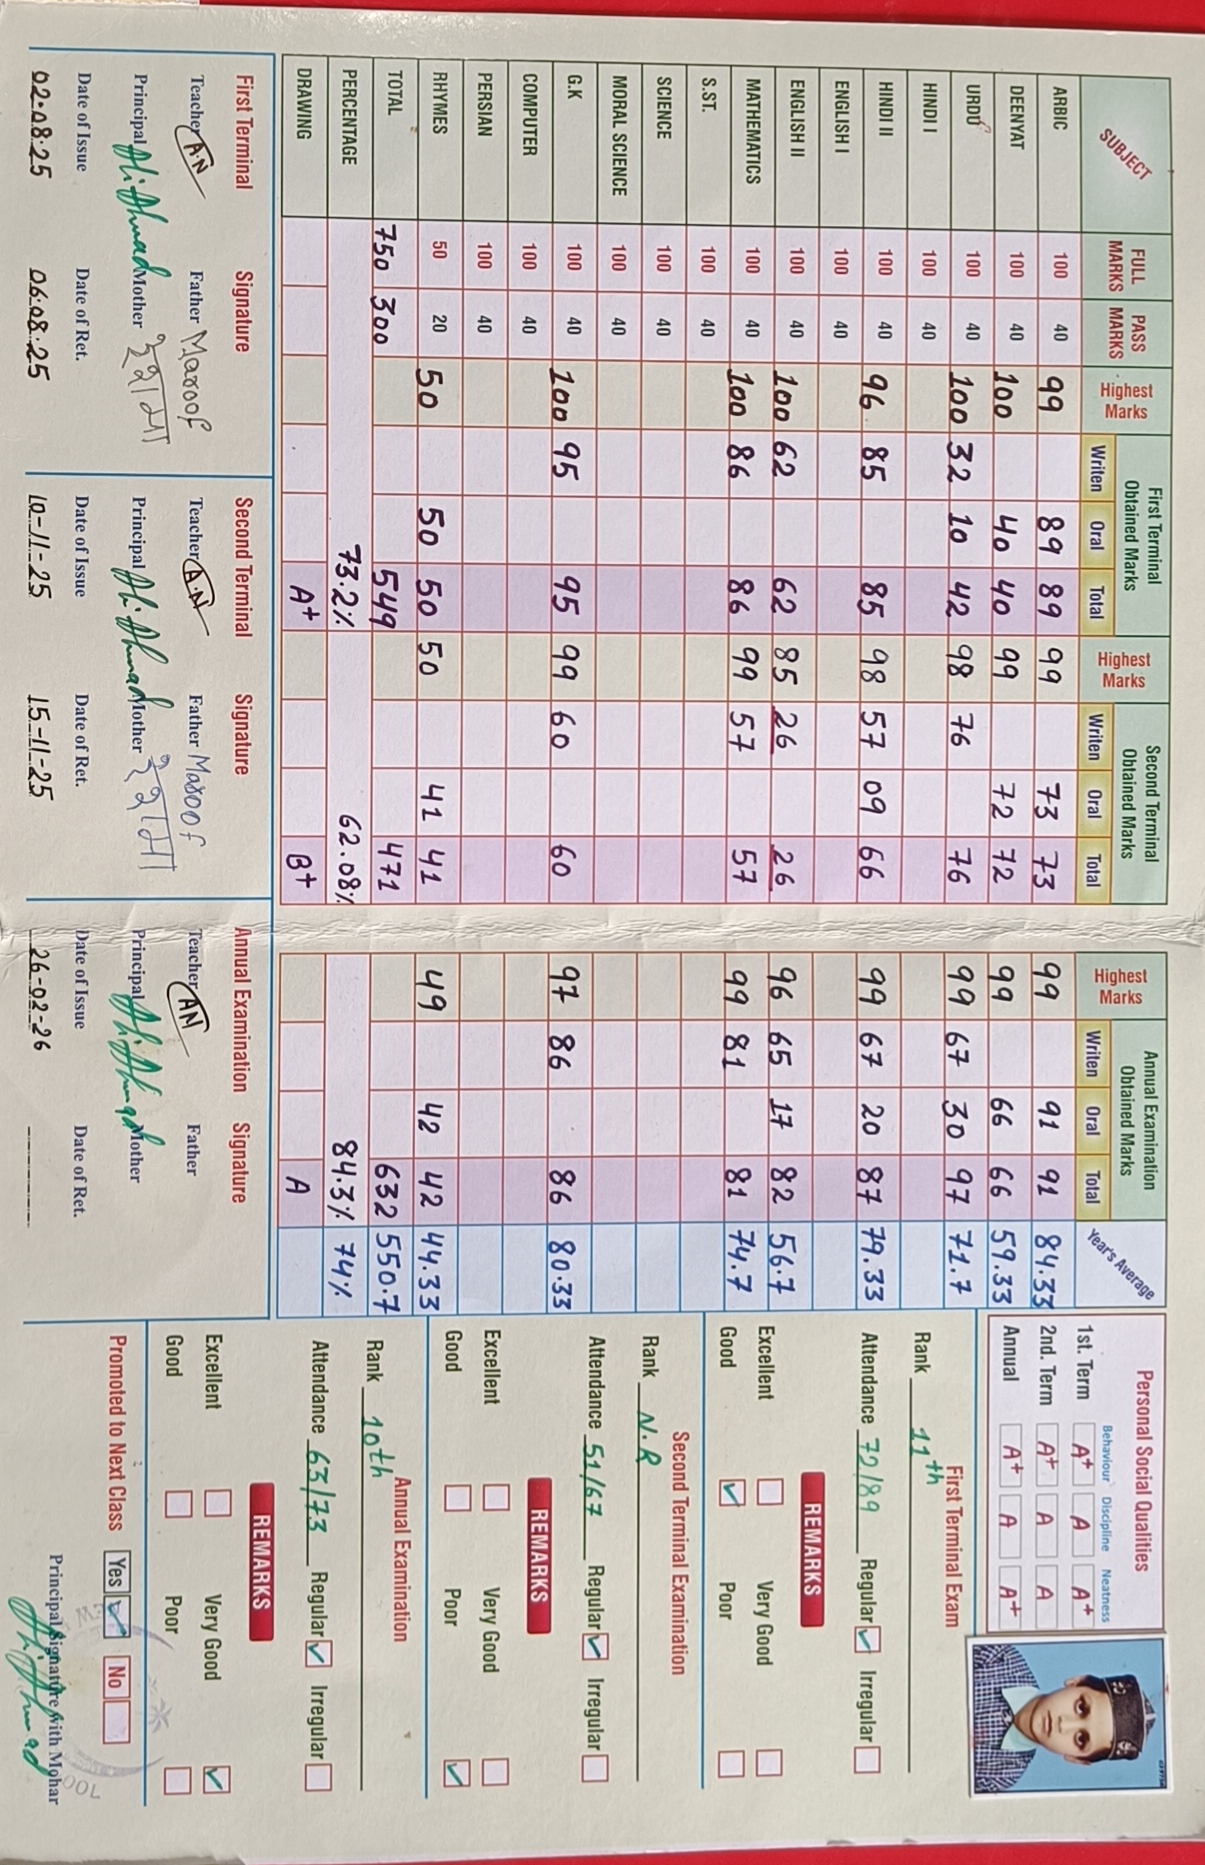 SUBJECT FULL MARKS PASS MARKS Highest Marks First Terminal Obtained Marks Writen Oral Total Highest Marks Second Terminal Obtained Marks Writen Oral Total Highest Marks Annual Examination Obtained Marks Writen Oral Total Year's Average
ARBIC 100 40 99 89 89 99 73 73 99 91 91 84.33
DEENYAT 100 40 100 40 40 99 72 72 99 66 66 59.33
URDU 100 40 100 32 10 42 98 76 76 99 67 30 97 71.7
HINDI I 100 40
HINDI II 100 40 96 85 85 98 57 09 66 99 67 20 87 79.33
ENGLISH I 100 40
ENGLISH II 100 40 100 62 62 85 26 26 96 65 17 82 56.7
MATHEMATICS 100 40 100 86 86 99 57 57 99 81 81 74.7
S.ST. 100 40
SCIENCE 100 40
MORAL SCIENCE 100 40
G.K 100 40 100 95 95 99 60 60 97 86 86 80.33
COMPUTER 100 40
PERSIAN 100 40
RHYMES 50 20 50 50 50 50 41 41 49 42 42 44.33
TOTAL 750 300 549 471 632 550.7
PERCENTAGE 73.2% 62.08% 84.3% 74%
DRAWING A+ B+ A
First Terminal Signature
Teacher A.N Father Maroof
Principal Ali Ahmad Mother रेशमा
Date of Issue Date of Ret.
02.08.25 06.08.25
Second Terminal Signature
Teacher A.N Father Maroof
Principal Ali Ahmad Mother रेशमा
Date of Issue Date of Ret.
10-11-25 15-11-25
Annual Examination Signature
Teacher AN Father
Principal Ali Ahmad Mother
Date of Issue Date of Ret.
26-02-26
Personal Social Qualities
Behaviour Discipline Neatness
1st. Term A+ A A+
2nd. Term A+ A A
Annual A+ A A+
First Terminal Exam
Rank 11th
Attendance 72/89 Regular Irregular
REMARKS
Excellent Very Good
Good Poor
Second Terminal Examination
Rank N.R
Attendance 51/67 Regular Irregular
REMARKS
Excellent Very Good
Good Poor
Annual Examination
Rank 10th
Attendance 63/73 Regular Irregular
REMARKS
Excellent Very Good
Good Poor
Promoted to Next Class Yes No
Principal Signature with Mohar
Ali Ahmad